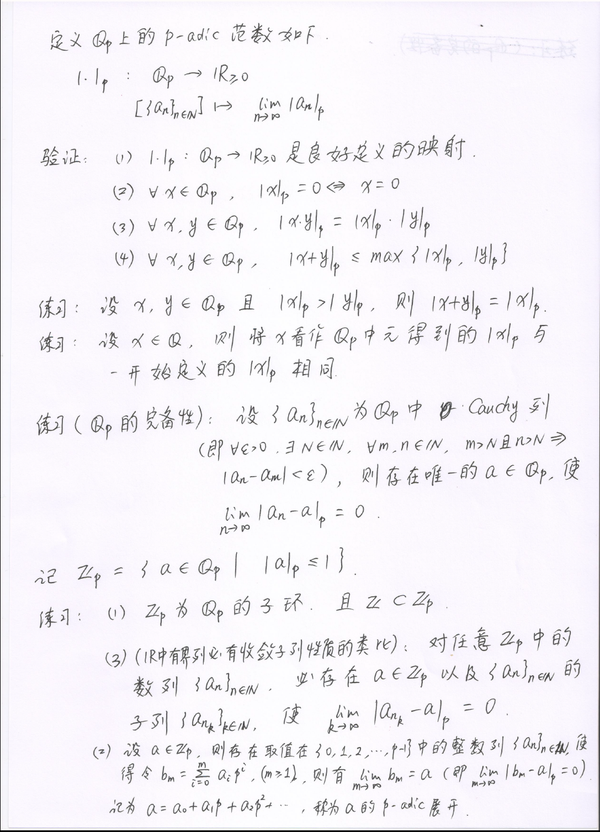 定义 Qp 上的 p-adic 范数如下.
|·|p : Qp → IR≥0
[{an}n∈IN] ↦ lim n→∞ |an|p
验证: (1) |·|p : Qp → IR≥0 是良好定义的映射.
(2) ∀ x ∈ Qp, |x|p = 0 ⇔ x = 0
(3) ∀ x, y ∈ Qp, |x·y|p = |x|p · |y|p
(4) ∀ x, y ∈ Qp, |x+y|p ≤ max {|x|p, |y|p}
练习: 设 x, y ∈ Qp 且 |x|p > |y|p, 则 |x+y|p = |x|p.
练习: 设 x ∈ Q, 则将 x 看作 Qp 中元得到的 |x|p 与
一开始定义的 |x|p 相同.
练习 (Qp 的完备性): 设 {an}n∈IN 为 Qp 中 Cauchy 列
(即 ∀ε>0, ∃ N∈IN, ∀m, n∈IN, m>N且n>N ⇒
|an-am|<ε), 则存在唯一的 a ∈ Qp, 使
lim n→∞ |an-a|p = 0.
记 Zp = {a ∈ Qp | |a|p ≤ 1}.
练习: (1) Zp 为 Qp 的子环. 且 Z ⊂ Zp.
(3) (IR中有界列必有收敛子列性质的类比): 对任意 Zp 中的
数列 {an}n∈IN, 必存在 a ∈ Zp 以及 {an}n∈IN 的
子列 {ank}k∈IN, 使 lim k→∞ |ank-a|p = 0.
(2) 设 a ∈ Zp, 则存在取值在 {0,1,2,…,p-1} 中的整数列 {an}n∈IN, 使
得令 bm = Σ i=0 m ai p^i, (m≥1), 则有 lim m→∞ bm = a (即 lim m→∞ |bm-a|p=0)
记为 a = a0+a1p+a2p²+…, 称为 a 的 p-adic 展开.